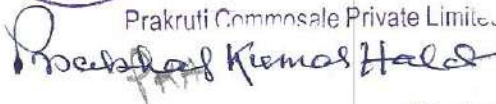 Prakruti Commosale Private Limited
Prabhas Kumar Halder